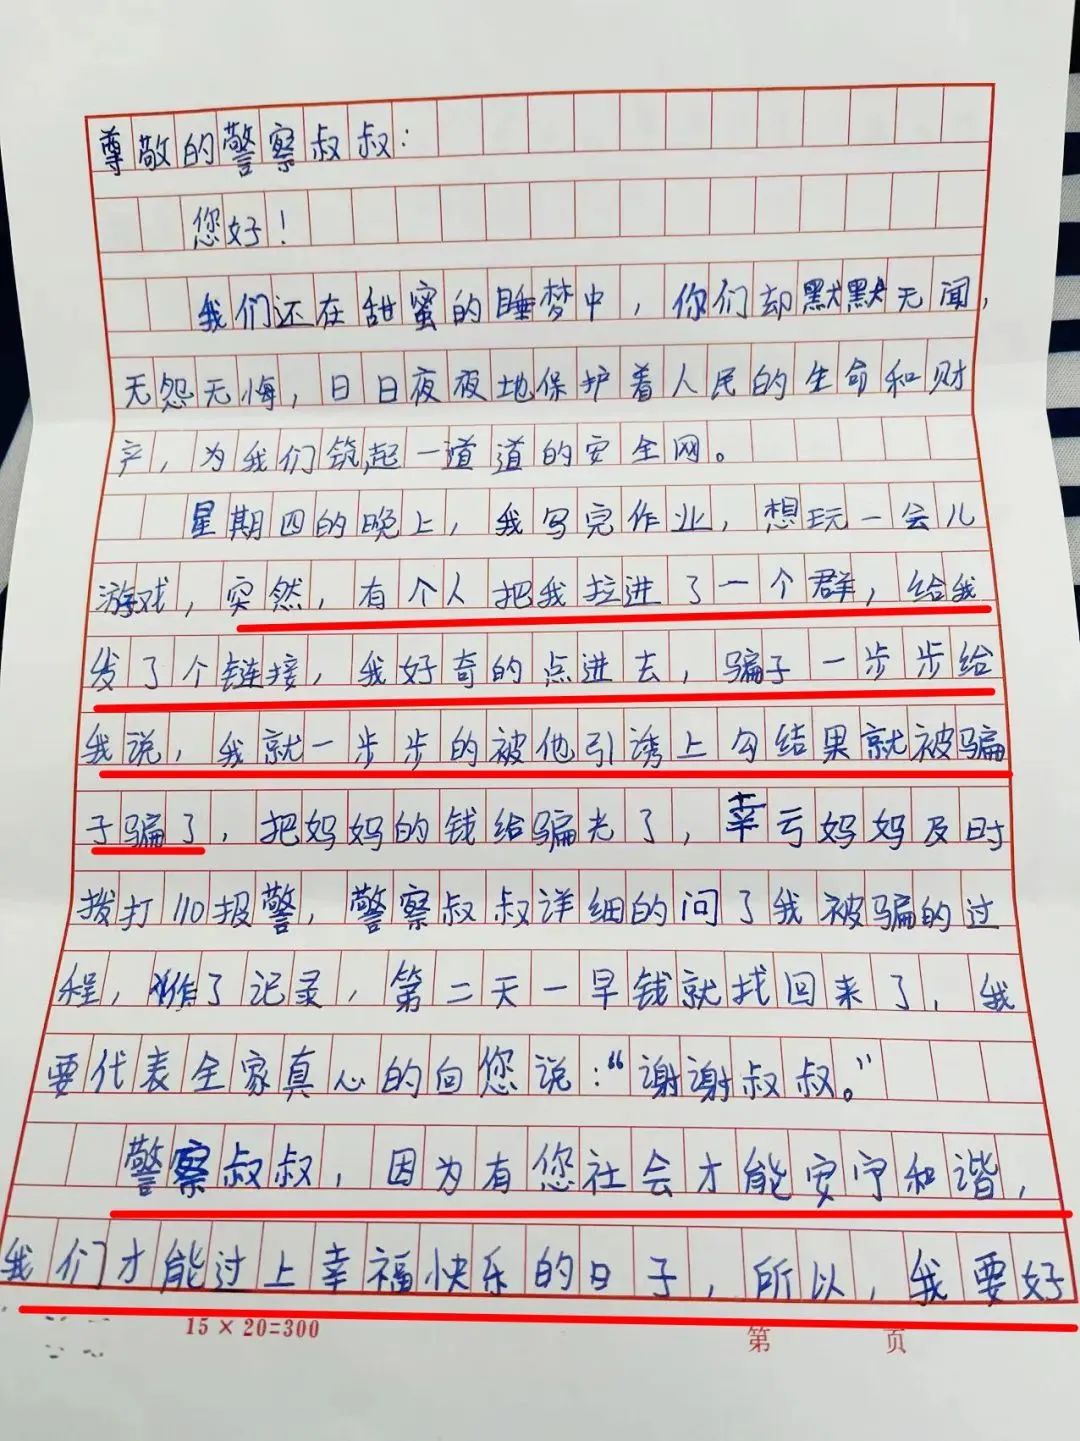 尊敬的警察叔叔:
您好!
我们还在甜蜜的睡梦中,你们却默默无闻,
无怨无悔,日日夜夜地保护着人民的生命和财
产,为我们筑起一道道的安全网。
星期四的晚上,我写完作业,想玩一会儿
游戏,突然,有个人把我拉进了一个群,给我
发了个链接,我好奇的点进去,骗子一步步给
我说,我就一步步的被他引诱上勾结果就被骗
子骗了,把妈妈的钱给骗光了,幸亏妈妈及时
拨打110报警,警察叔叔详细的问了我被骗的过
程,作了记录,第二天一早钱就找回来了,我
要代表全家真心的向您说:“谢谢叔叔。”
警察叔叔,因为有您社会才能安宁和谐,
我们才能过上幸福快乐的日子,所以,我要好
15×20=300 第 页